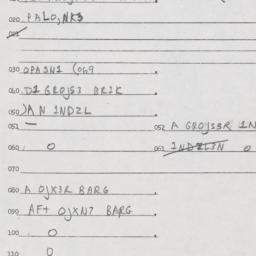 020 PALO,NKS
021
030 OPASN1 (069
040 D1 GROJS3 BRIK
050 )A N 1NDZL
051 052 A GROJS3R 1N
060 0 061 1NDZLJN 0
070
080 A OJX3R BARG
090 AF+ OJXN7 BARG
100 0
110 0